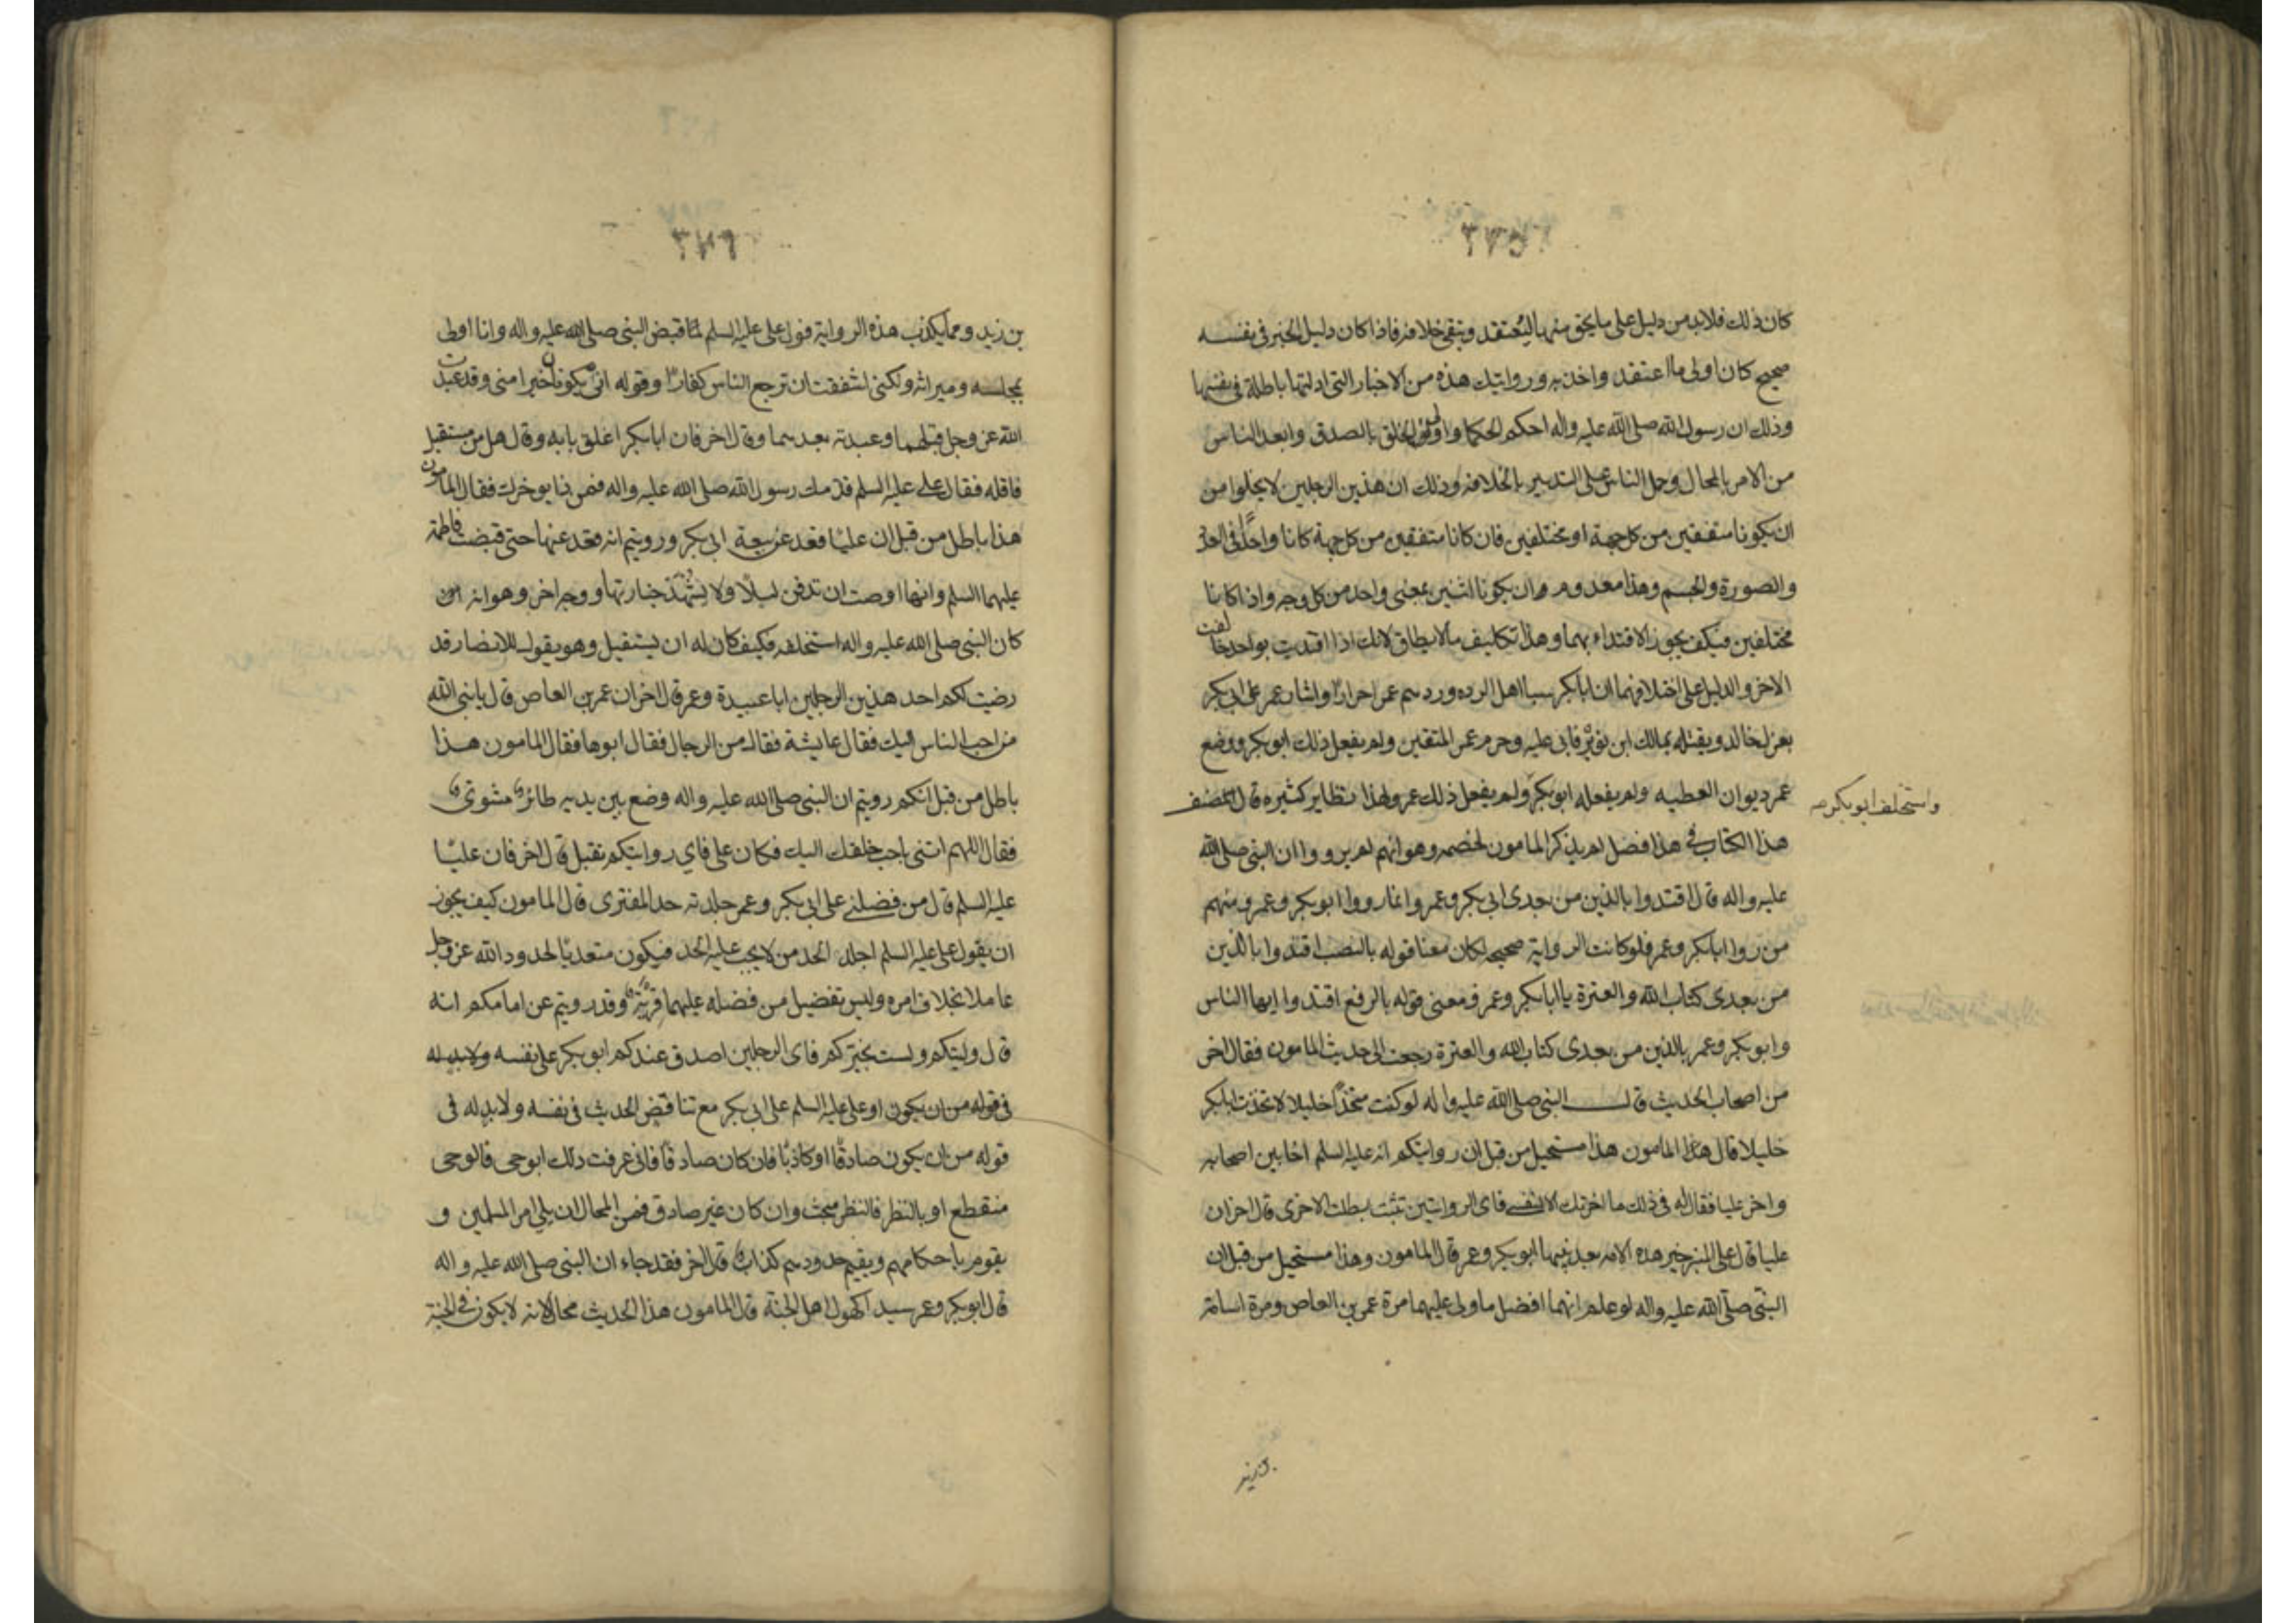 ٣٧٥
كان ذلك فلابد من دليل على ما يحق منها ليعتقد وينفى خلافه فاذا كان دليل الخبر فى نفسه
صحيح كان اولى ما اعتقد واخذ به وروايتك هذه من الاخبار التى ادلتها باطلة فى نفسها
وذلك ان رسول الله صلى الله عليه واله احكم الحكما واولى الخلق بالصدق وابعد الناس
من الامر بالمحال وحمل الناس على التدبير بالخلافه وذلك ان هذين الرجلين لا يخلوا من
ان يكونا متفقين من كل جهة او مختلفين فان كانا متفقين من كل جهة كانا واحدًا فى العدد
والصورة والجسم وهذا معدوم ان يكونا اثنين بمعنى واحد من كل وجه واذا كانا
مختلفين فكيف يجوز الاقتداء بهما وهذا تكليف ما لا يطاق لانك اذا اقتديت بواحد خالفت
الاخر والدليل على اختلافهما ان ابابكر سبا اهل الرده وردهم عمر احرارًا واشار عمر على ابى بكر
بعزل خالد وبقتله بمالك ابن نويرة فابى عليه وحرم عمر المتعتين ولم يفعل ذلك ابوبكر ووضع
عمر ديوان العطيه ولم يفعله ابوبكر ولم يفعل ذلك عمر ولهذا نظاير كثيره قال المصنف
واستخلف ابوبكر
هذا الكتاب فى هذا فصل لم يذكر المامون لخصمه وهو انهم لم يرووا ان النبى صلى الله
عليه واله قال اقتدوا بالذين من بعدى ابى بكر وعمر وانما رووا ابوبكر وعمر ومنهم
من روا ابابكر وعمر فلو كانت الرواية صحيحه لكان معنا قوله بالنصب اقتدوا بالذين
من بعدى كتاب الله والعترة يا ابابكر وعمر ومعنى قوله بالرفع اقتدوا ايها الناس
وابوبكر وعمر بالذين من بعدى كتاب الله والعترة رجعت الى حديث المامون فقال اخر
من اصحاب الحديث قال النبى صلى الله عليه واله لو كنت متخذًا خليلا لاتخذت ابابكر
خليلا قال هذا المامون هذا مستحيل من قبل ان روايتكم انه عليه السلم اخا بين اصحابه
واخر عليا فقال له فى ذلك ما اخرتك الا لنفسى فاى الروايتين تثبت بطلت الاخرى قال اخر ان
عليا قال على المنبر خير هذه الامه بعد نبيها ابوبكر وعمر قال المامون وهذا مستحيل من قبل ان
النبى صلى الله عليه واله لو علم انهما افضل ما ولى عليهما مرة عمر بن العاص ومرة اسامة
بن زيد
٣٧٦
بن زيد ومما يكذب هذه الرواية قول على عليه السلم لما قبض النبى صلى الله عليه واله وانا اولى
بمجلسه وميراثه ولكنى اشفقت ان ترجع الناس كفارًا وقوله انى يكونان خيرا منى وقد عبدت
الله عز وجل قبلهما وعبدته بعدهما وقال اخر فان ابابكر اغلق بابه وقال هل من مستقيل
فاقله فقال على عليه السلم قدمك رسول الله صلى الله عليه واله فمن ذا يوخرك فقال المامون
هذا باطل من قبل ان عليًا قعد عن بيعة ابى بكر ورويتم انه قعد عنها حتى قبضت فاطمة
عليهما السلم وانها اوصت ان تدفن ليلًا ولا يشهد جنازتها ووجه اخر وهو انه ان
كان النبى صلى الله عليه واله استخلفه فكيف كان له ان يستقيل وهو يقول للانصار قد
رضيت لكم احد هذين الرجلين ابا عبيدة وعمر قال اخر ان عمر بن العاص قال يا نبى الله
من احب الناس اليك فقال عايشة فقال من الرجال فقال ابوها فقال المامون هذا
باطل من قبل انكم رويتم ان النبى صلى الله عليه واله وضع بين يديه طائر مشوى
فقال اللهم ائتنى باحب خلقك اليك فكان على فاى روايتكم تقبل قال اخر فان عليًا
عليه السلم قال من فضلنى على ابى بكر وعمر جلدته حد المفترى قال المامون كيف يجوز
ان يقول على عليه السلم اجلد الحد من لا يجب عليه الحد فيكون متعديًا لحدود الله عز وجل
عاملا بخلاف امره وليس تفضيل من فضله عليهما فرية وقد رويتم عن امامكم انه
قال وليتكم ولست بخيركم فاى الرجلين اصدق عندكم ابوبكر على نفسه ولابد له
فى قوله من ان يكون او على عليه السلم على ابى بكر مع تناقض الحديث فى نفسه ولابد له فى
قوله من ان يكون صادقًا او كاذبًا فان كان صادقًا فانى عرفت ذلك ابوحى فالوحى
منقطع او بالنظر فالنظر مبحث وان كان غير صادق فمن المحال ان يلى امر المسلمين و
يقوم باحكامهم ويقيم حدودهم كذاب قال اخر فقد جاء ان النبى صلى الله عليه واله
قال ابوبكر وعمر سيدا كهول اهل الجنة قال المامون هذا الحديث محال لانه لا يكون فى الجنة